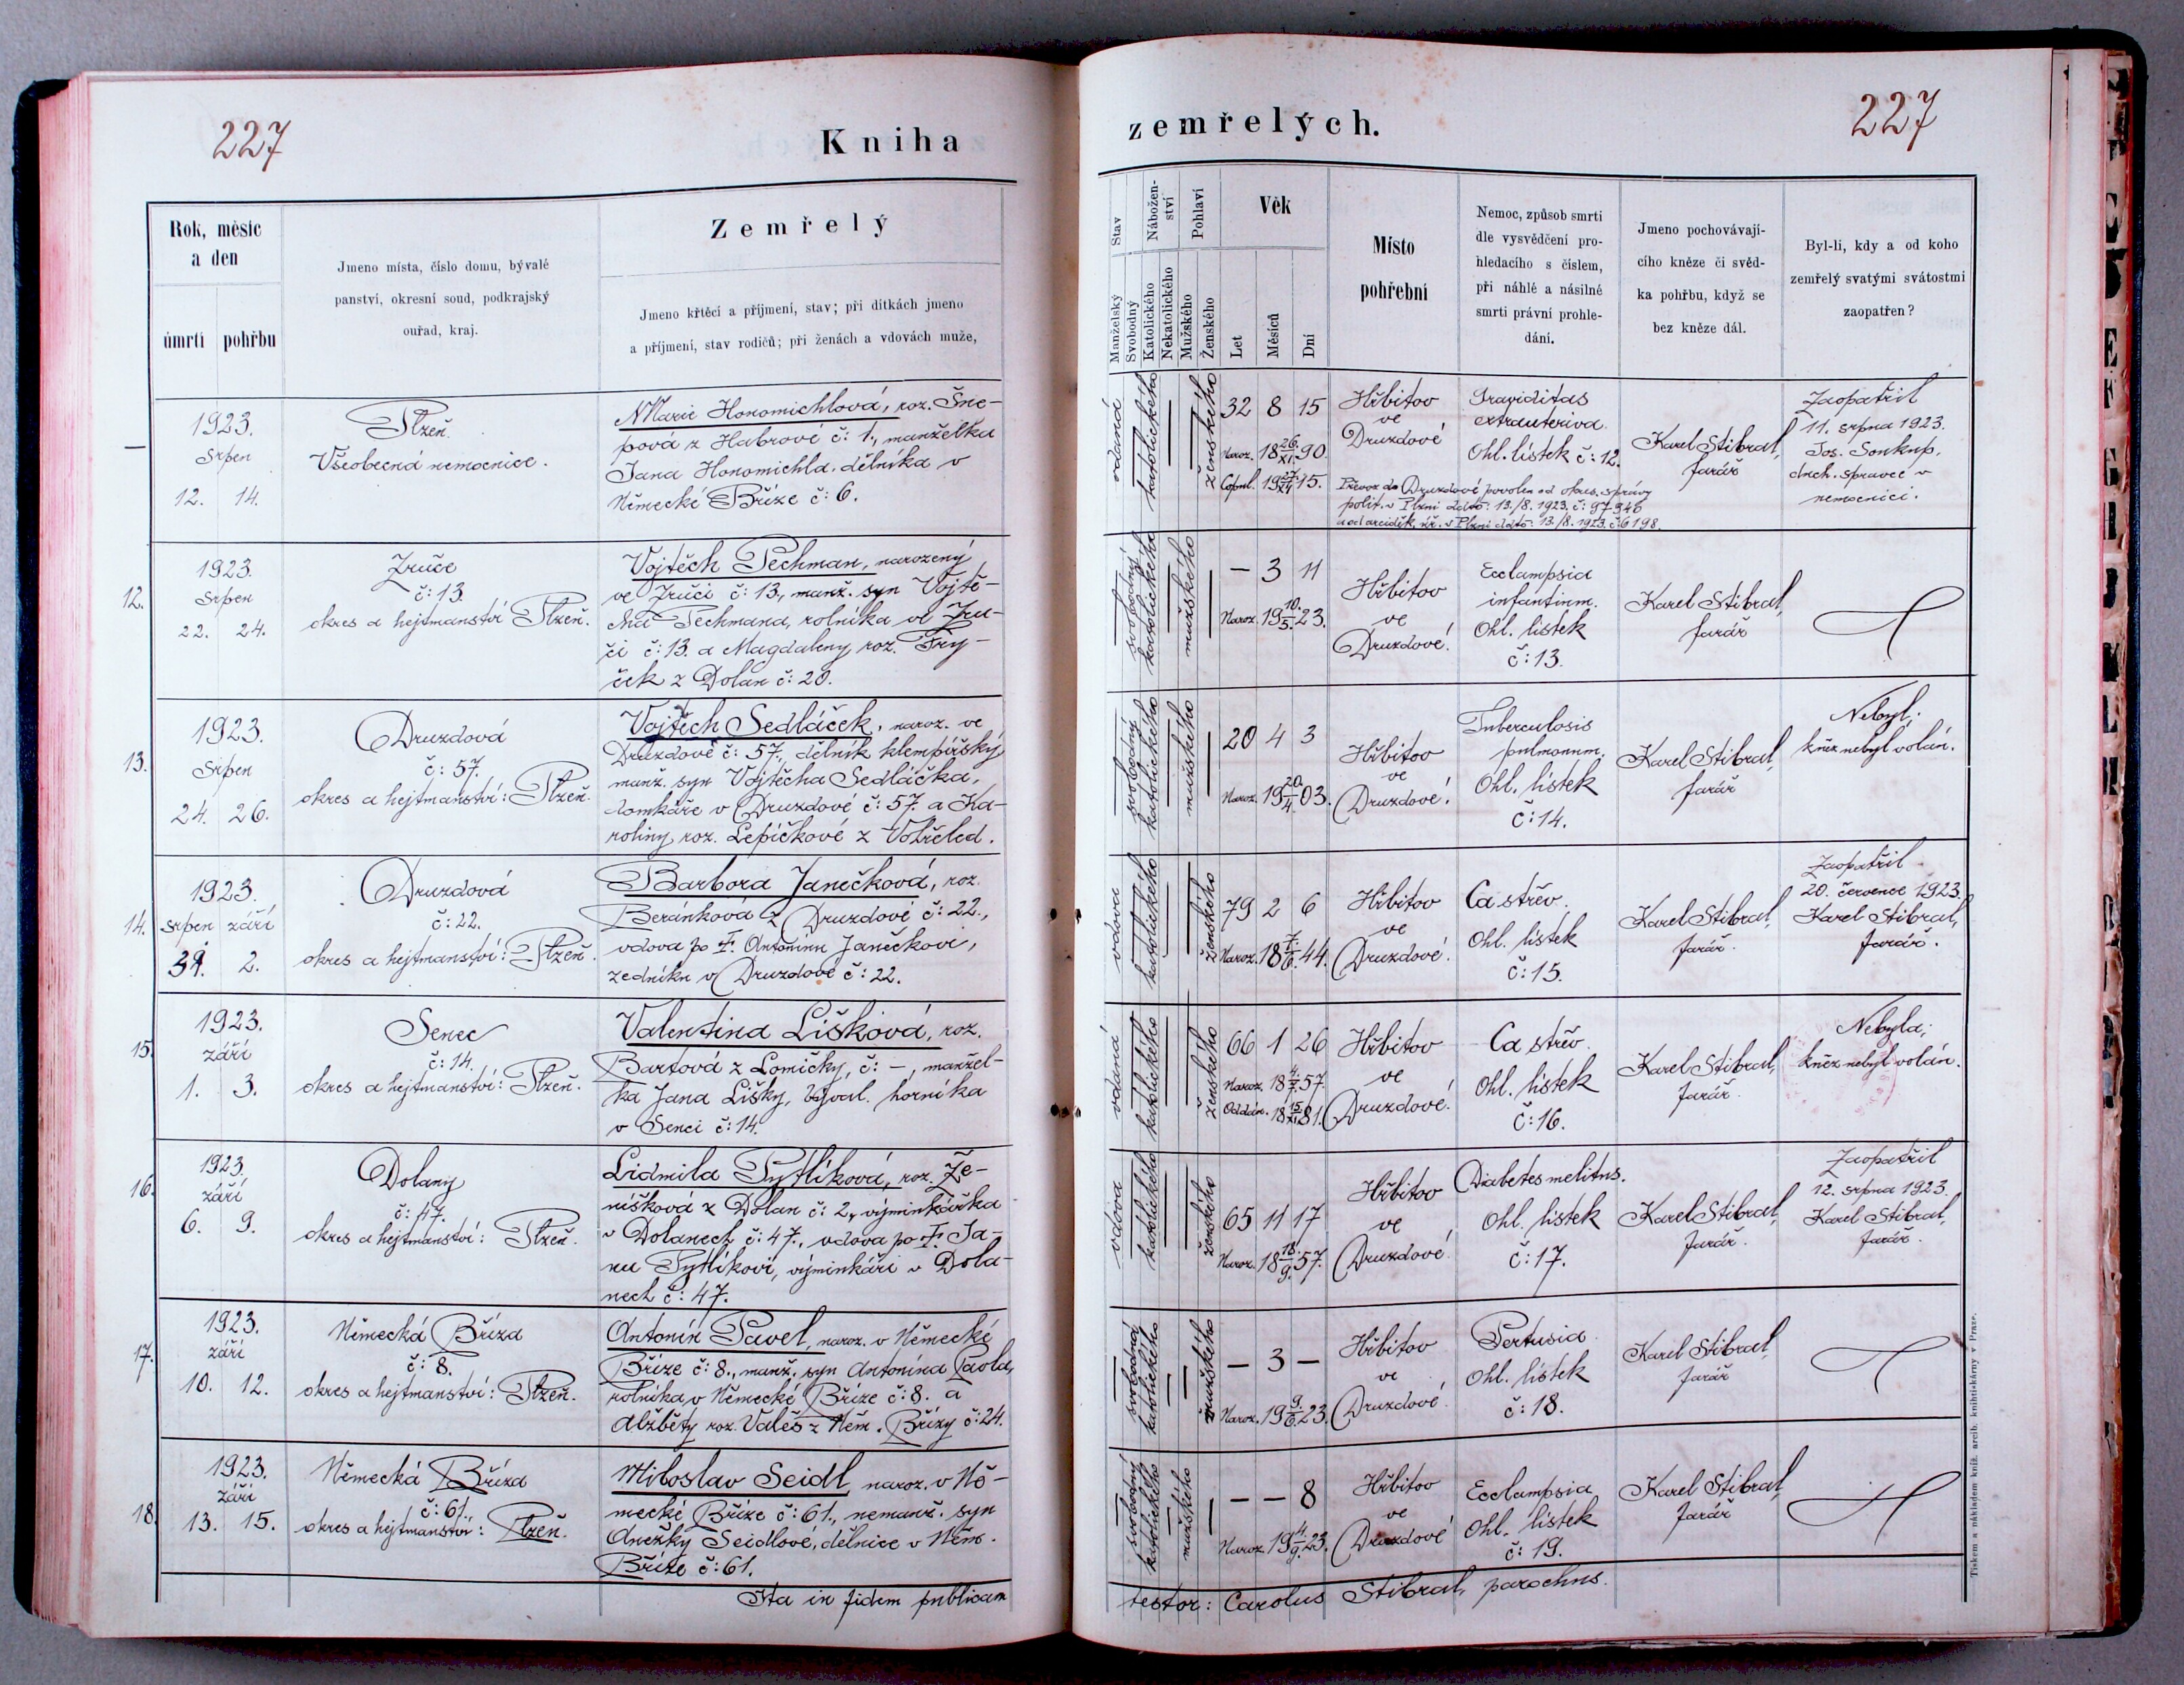 227
Kniha
Rok, měsíc
a den
úmrtí pohřbu
Jmeno místa, číslo domu, bývalé
panství, okresní soud, podkrajský
ouřad, kraj.
Zemřelý
Jmeno křtěcí a příjmení, stav; při dítkách jmeno
a příjmení, stav rodičů; při ženách a vdovách muže,
—
1923.
srpen
12. 14.
Plzeň.
Všeobecná nemocnice.
Marie Honomichlová, roz. Šne-
pová z Habrové č: 1., manželka
Jana Honomichla, dělníka v
Německé Bříze č: 6.
12.
1923.
srpen
22. 24.
Zruče
č: 13.
okres a hejtmanství Plzeň.
Vojtěch Pechman, narozený
ve Zruči č: 13., manž. syn Vojtě-
cha Pechmana, rolníka ve Zru-
či č: 13. a Magdaleny roz. Fry-
ček z Dolan č: 20.
13.
1923.
srpen
24. 26.
Druzdová
č: 57.
okres a hejtmanství: Plzeň.
Vojtěch Sedláček, naroz. ve
Druzdové č: 57., dělník klempířský
manž. syn Vojtěcha Sedláčka,
domkáře v Druzdové č: 57. a Ka-
roliny roz. Lepičkové z
14.
1923.
srpen září
31. 2.
Druzdová
č: 22.
okres a hejtmanství: Plzeň.
Barbora Janečková, roz.
Beránková z Druzdové č: 22.,
vdova po † Antonínu Janečkovi,
zedníku v Druzdové č: 22.
15.
1923.
září
1. 3.
Senec
č: 14.
okres a hejtmanství: Plzeň.
Valentina Lišková, roz.
Bartová z Lomičky, č: –, manžel-
ka Jana Lišky, býval. horníka
v Senci č: 14.
16.
1923.
září
6. 9.
Dolany
č: 47.
okres a hejtmanství: Plzeň.
Lidmila Pytlíková, roz. Že-
níšková z Dolan č: 2., výminkářka
v Dolanech č: 47., vdova po † Ja-
nu Pytlíkovi, výminkáři v Dola-
nech č: 47.
17.
1923.
září
10. 12.
Německá Bříza
č: 8.
okres a hejtmanství: Plzeň.
Antonín Pavel, naroz. v Německé
Bříze č: 8., manž. syn Antonína Pavla,
rolníka v Německé Bříze č: 8. a
Alžběty roz. Valeš z Něm. Břízy č: 24.
18.
1923.
září
13. 15.
Německá Bříza
č: 61.,
okres a hejtmanství: Plzeň.
Miloslav Seidl, naroz. v Ně-
mecké Bříze č: 61., nemanž. syn
Anežky Seidlové, dělnice v Něm.
Bříze č: 61.
Ita in fidem publicam
zemřelých.
227
Stav
Manželský
Svobodný
Nábožen-
ství
Katolického
Nekatolického
Pohlaví
Mužského
Ženského
Věk
Let
Měsíců
Dní
Místo
pohřební
Nemoc, způsob smrti
dle vysvědčení pro-
hledacího s číslem,
při náhlé a násilné
smrti právní prohle-
dání.
Jmeno pochovávají-
cího kněze či svěd-
ka pohřbu, když se
bez kněze dál.
Byl-li, kdy a od koho
zemřelý svatými svátostmi
zaopatřen?
vdaná
katolického
ženského
32 8 15
Naroz. 18 26./XI. 90.
Copul. 19 27./XI. 15.
Hřbitov
ve
Druzdové
Graviditas
extrauterina.
Ohl. lístek č: 12.
Převoz do Druzdové povolen od okres. správy
polit. v Plzni ddto: 13./8. 1923. č: 97346
a od arciděk. úř. v Plzni ddto: 13./8. 1923. č: 6198.
Karel Stibral,
farář
Zaopatřil
11. srpna 1923.
Jos. Soukup,
duch. správce v
nemocnici.
svobodný
katolického
mužského
– 3 11
Naroz. 19 10./5. 23.
Hřbitov
ve
Druzdové.
Ecclampsia
infantium.
Ohl. lístek
č: 13.
Karel Stibral,
farář
svobodný
katolického
mužského
20 4 3
Naroz. 19 20./4. 03.
Hřbitov
ve
Druzdové.
Tuberculosis
pulmonum.
Ohl. lístek
č: 14.
Karel Stibral,
farář
Nebyl;
kněz nebyl volán.
vdova
katolického
ženského
79 2 6
Naroz. 18 7./6. 44.
Hřbitov
ve
Druzdové.
Ca střev.
Ohl. lístek
č: 15.
Karel Stibral,
farář.
Zaopatřil
20. července 1923.
Karel Stibral,
farář.
vdaná
katolického
ženského
66 1 26
Naroz. 18 4./7. 57.
Oddán. 18 15./XI. 81.
Hřbitov
ve
Druzdové.
Ca střev.
Ohl. lístek
č: 16.
Karel Stibral,
farář.
Nebyla;
kněz nebyl volán.
vdova
katolického
ženského
65 11 17
Naroz. 18 18./9. 57.
Hřbitov
ve
Druzdové.
Diabetes melitus.
Ohl. lístek
č: 17.
Karel Stibral,
farář.
Zaopatřil
12. srpna 1923.
Karel Stibral,
farář.
svobodný
katolického
mužského
– 3 –
Naroz. 19 9./6. 23.
Hřbitov
ve
Druzdové.
Pertusia.
Ohl. lístek
č: 18.
Karel Stibral,
farář
svobodný
katolického
mužského
– – 8
Naroz. 19 4./9. 23.
Hřbitov
ve
Druzdové
Ecclampsia
Ohl. lístek
č: 19.
Karel Stibral,
farář
testor: Carolus Stibral, parochus.
Tiskem a nákladem kníž. arcib. knihtiskárny v Praze.